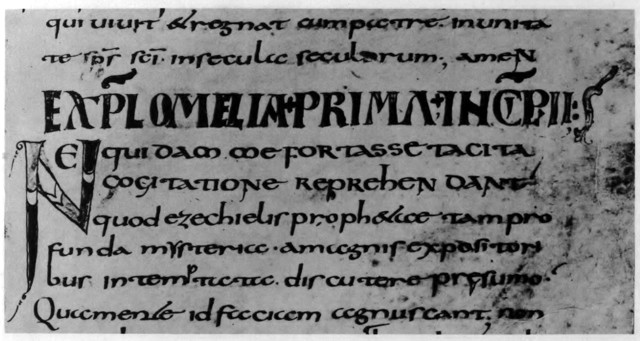 qui vivit & regnat cum patre. in unita
te sp̅s̅ sc̅i̅. in secula seculorum; amen
EXP̅L OMELIA·PRIMA·INCIP̅·II:
NE quidam me fortasse tacita
cogitatione reprehendant
quod ezechielis proph&ae tam pro
funda mysteria· amagnis expositori
bus intemptata. discutere presumo·
Quamente id faciam agnuscant. non